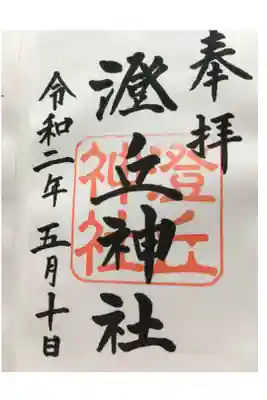 奉拝
澄丘神社
澄丘神社
令和二年 五月十日